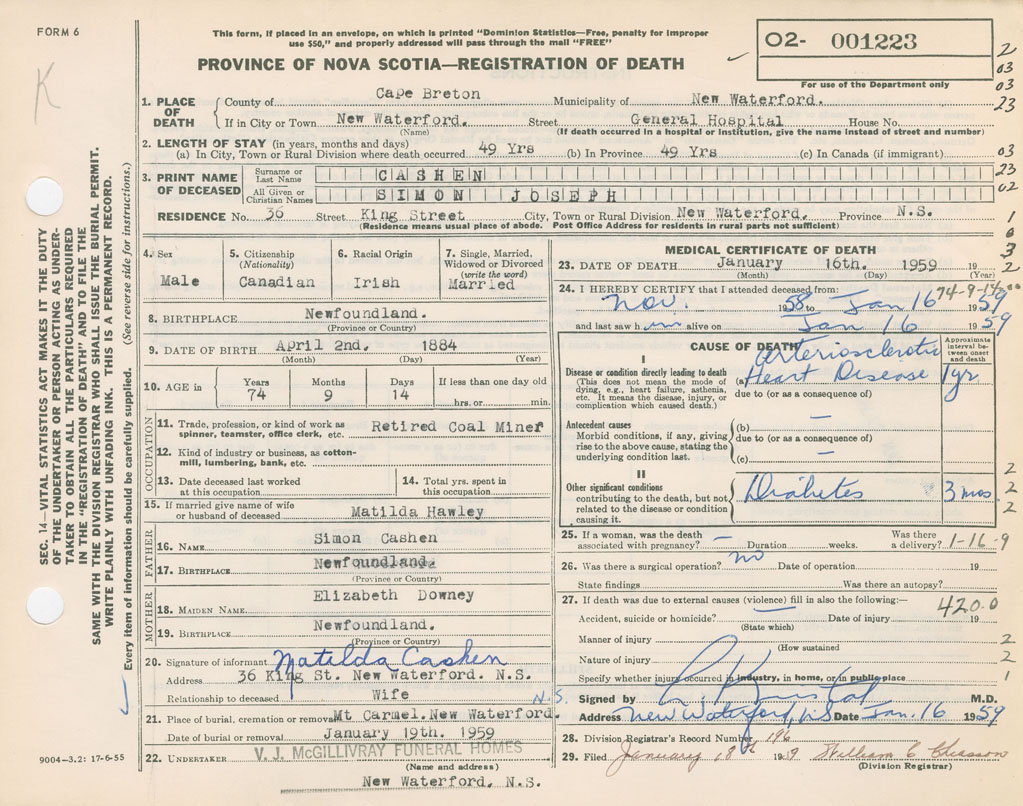 FORM 6
This form, if placed in an envelope, on which is printed "Dominion Statistics—Free, penalty for improper
use $50," and properly addressed will pass through the mail "FREE"
PROVINCE OF NOVA SCOTIA—REGISTRATION OF DEATH
02- 001223
For use of the Department only
K
2
03
03
23
03
23
02
1
6
3
2
SEC. 14—VITAL STATISTICS ACT MAKES IT THE DUTY
OF THE UNDERTAKER OR PERSON ACTING AS UNDER-
TAKER TO OBTAIN ALL THE PARTICULARS REQUIRED
IN THE "REGISTRATION OF DEATH" AND TO FILE THE
SAME WITH THE DIVISION REGISTRAR WHO SHALL ISSUE THE BURIAL PERMIT.
WRITE PLAINLY WITH UNFADING INK. THIS IS A PERMANENT RECORD.
Every item of information should be carefully supplied. (See reverse side for instructions.)
1. PLACE OF DEATH
County of Cape Breton Municipality of New Waterford.
If in City or Town New Waterford. Street General Hospital House No.
(Name) (If death occurred in a hospital or institution, give the name instead of street and number)
2. LENGTH OF STAY (in years, months and days)
(a) In City, Town or Rural Division where death occurred 49 Yrs (b) In Province 49 Yrs (c) In Canada (if immigrant)
3. PRINT NAME OF DECEASED
Surname or Last Name CASHEN
All Given or Christian Names SIMON JOSEPH
RESIDENCE No. 36 Street King Street City, Town or Rural Division New Waterford. Province N.S.
(Residence means usual place of abode. Post Office Address for residents in rural parts not sufficient)
4. Sex
Male
5. Citizenship (Nationality)
Canadian
6. Racial Origin
Irish
7. Single, Married, Widowed or Divorced (write the word)
Married
8. BIRTHPLACE Newfoundland.
(Province or Country)
9. DATE OF BIRTH April 2nd. 1884
(Month) (Day) (Year)
10. AGE in Years Months Days If less than one day old
74 9 14 hrs. or min.
OCCUPATION
11. Trade, profession, or kind of work as
spinner, teamster, office clerk, etc. Retired Coal Miner
12. Kind of industry or business, as cotton-
mill, lumbering, bank, etc.
13. Date deceased last worked
at this occupation
14. Total yrs. spent in
this occupation
15. If married give name of wife
or husband of deceased Matilda Hawley
FATHER
16. NAME Simon Cashen
17. BIRTHPLACE Newfoundland.
(Province or Country)
MOTHER
18. MAIDEN NAME Elizabeth Downey
19. BIRTHPLACE Newfoundland.
(Province or Country)
20. Signature of informant Matilda Cashen
Address 36 King St. New Waterford. N.S.
Relationship to deceased Wife
N.S.
21. Place of burial, cremation or removal Mt Carmel. New Waterford.
Date of burial or removal January 19th. 1959
22. UNDERTAKER V. J. McGILLIVRAY FUNERAL HOMES
(Name and address)
New Waterford. N.S.
9004-3.2: 17-6-55
MEDICAL CERTIFICATE OF DEATH
23. DATE OF DEATH January 16th. 1959 19
(Month) (Day) (Year)
24. I HEREBY CERTIFY that I attended deceased from: 74-9-14
Nov. 1958 to Jan 16 1959
and last saw him alive on Jan 16 1959
CAUSE OF DEATH
Approximate interval between onset and death
I
Disease or condition directly leading to death
(This does not mean the mode of
dying, e.g., heart failure, asthenia,
etc. It means the disease, injury, or
complication which caused death.)
(a) Arteriosclerotic
Heart Disease 1 yr
due to (or as a consequence of)
Antecedent causes
Morbid conditions, if any, giving
rise to the above cause, stating the
underlying condition last.
(b) —
due to (or as a consequence of)
(c) —
II
Other significant conditions
contributing to the death, but not
related to the disease or condition
causing it.
Diabetes 3 mos.
2
2
2
25. If a woman, was the death
associated with pregnancy? — Duration weeks. Was there
a delivery? 1-16-9
26. Was there a surgical operation? no Date of operation 19
State findings Was there an autopsy?
27. If death was due to external causes (violence) fill in also the following:—
420.0
Accident, suicide or homicide? Date of injury 19
(State which)
Manner of injury 2
(How sustained
Nature of injury 2
Specify whether injury occurred in industry, in home, or in public place 1
Signed by M.D.
Address New Waterford, NS Date Jan. 16 1959
28. Division Registrar's Record Number 196
29. Filed January 18th 1959 William C Chiasson
(Division Registrar)